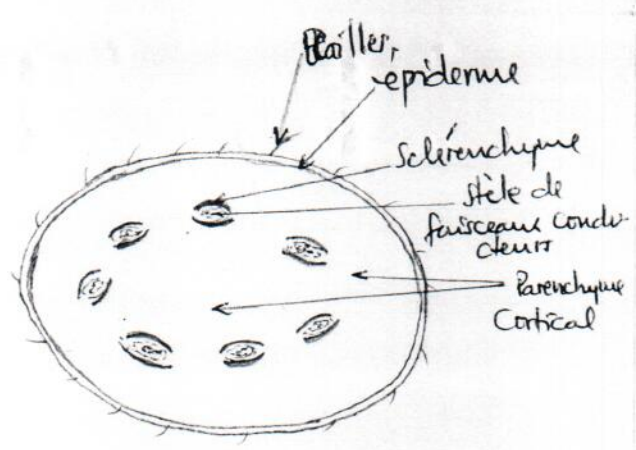 épiderme
Sclérenchyme
stèle de
faisceaux condu-
cteurs
Parenchyme
Cortical